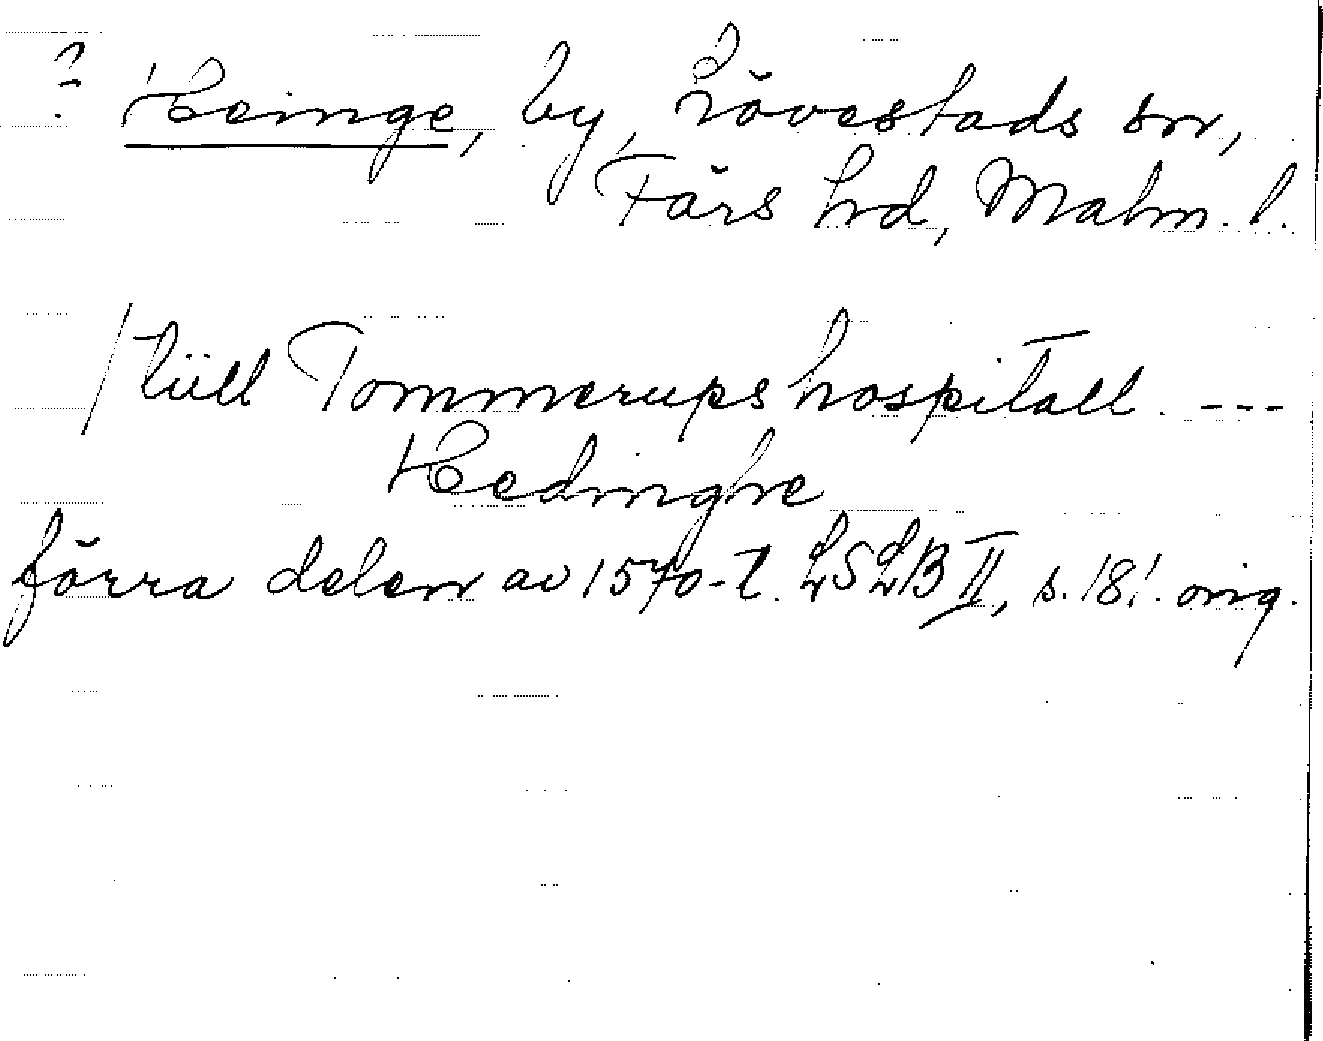 ? Heinge, by, Lövestads sn,
Färs hd, Malm. l.
/ tüll Tommerups hospitall. ---
Hedinghe
förra delen av 1570-t. LSLB II, s. 18!. orig.